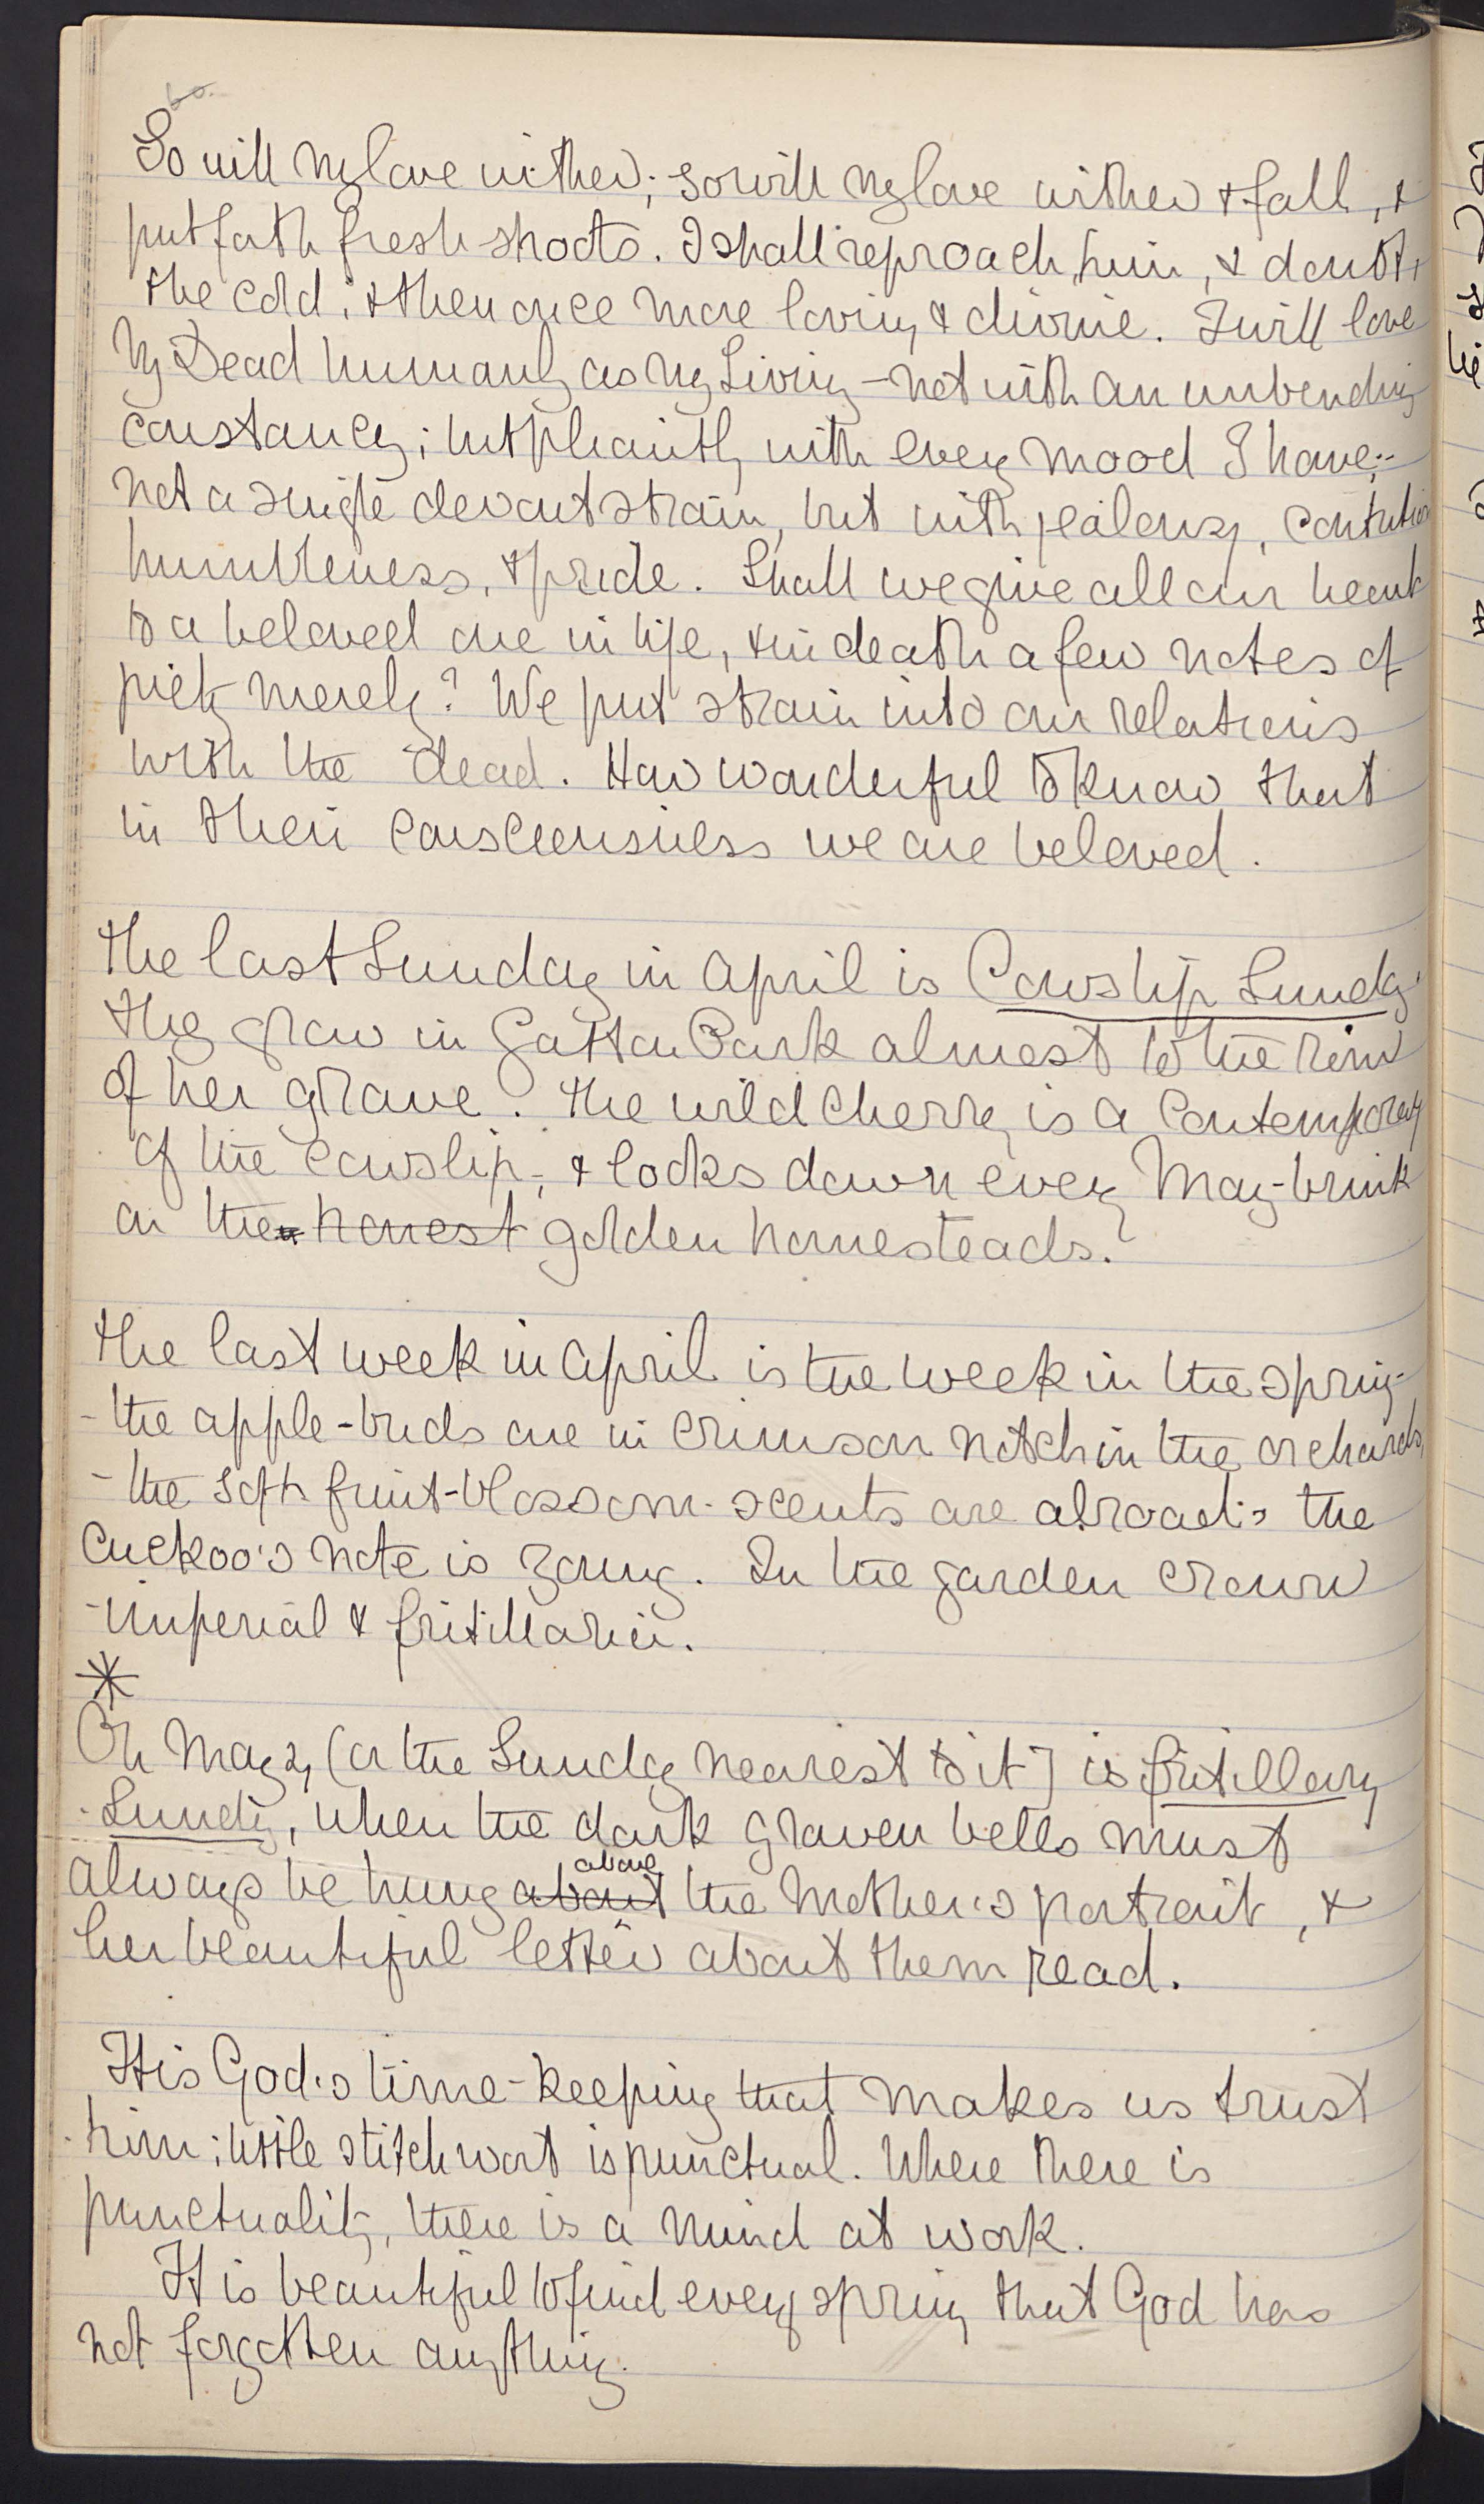 60.
So will my love wither; so will my love wither & fall, &
put forth fresh shoots. I shall reproach him, & doubt,
the cold; & then once more loving & divine. I will love
my Dead humanly as my Living – not with an unbending
constancy; but pliantly with every mood I have;-
not a single devout strain, but with jealousy, contrition
humbleness, & pride. Shall we give all our heart
to a beloved one in life, & in death a few notes of
piety merely? We put strain into our relations
with the dead. How wonderful to know that
in their consciousness we are beloved.
The last Sunday in April is Cowslip Sunday.
They grow in Gatton Park almost to the rim
of her grave. The wild cherry is a contemporary
of the cowslip, & looks down every May-brink
on the honest golden homesteads.
The last week in April is the week in the spring-
- the apple-buds are in crimson notch in the orchards,
- the soft fruit-blossom-scents are abroad: the
cuckoo's note is young. In the garden crown
-imperial & fritillaria.
*
On May 2, (or the Sunday nearest to it) is fritillary
Sunday, when the dark graven bells must
above
always be hung about the Mother's portrait, &
her beautiful letter about them read.
It is God's time-keeping that makes us trust
him; little stitchwort is punctual. Where there is
punctuality, there is a mind at work.
It is beautiful to find every spring that God has
not forgotten anything.